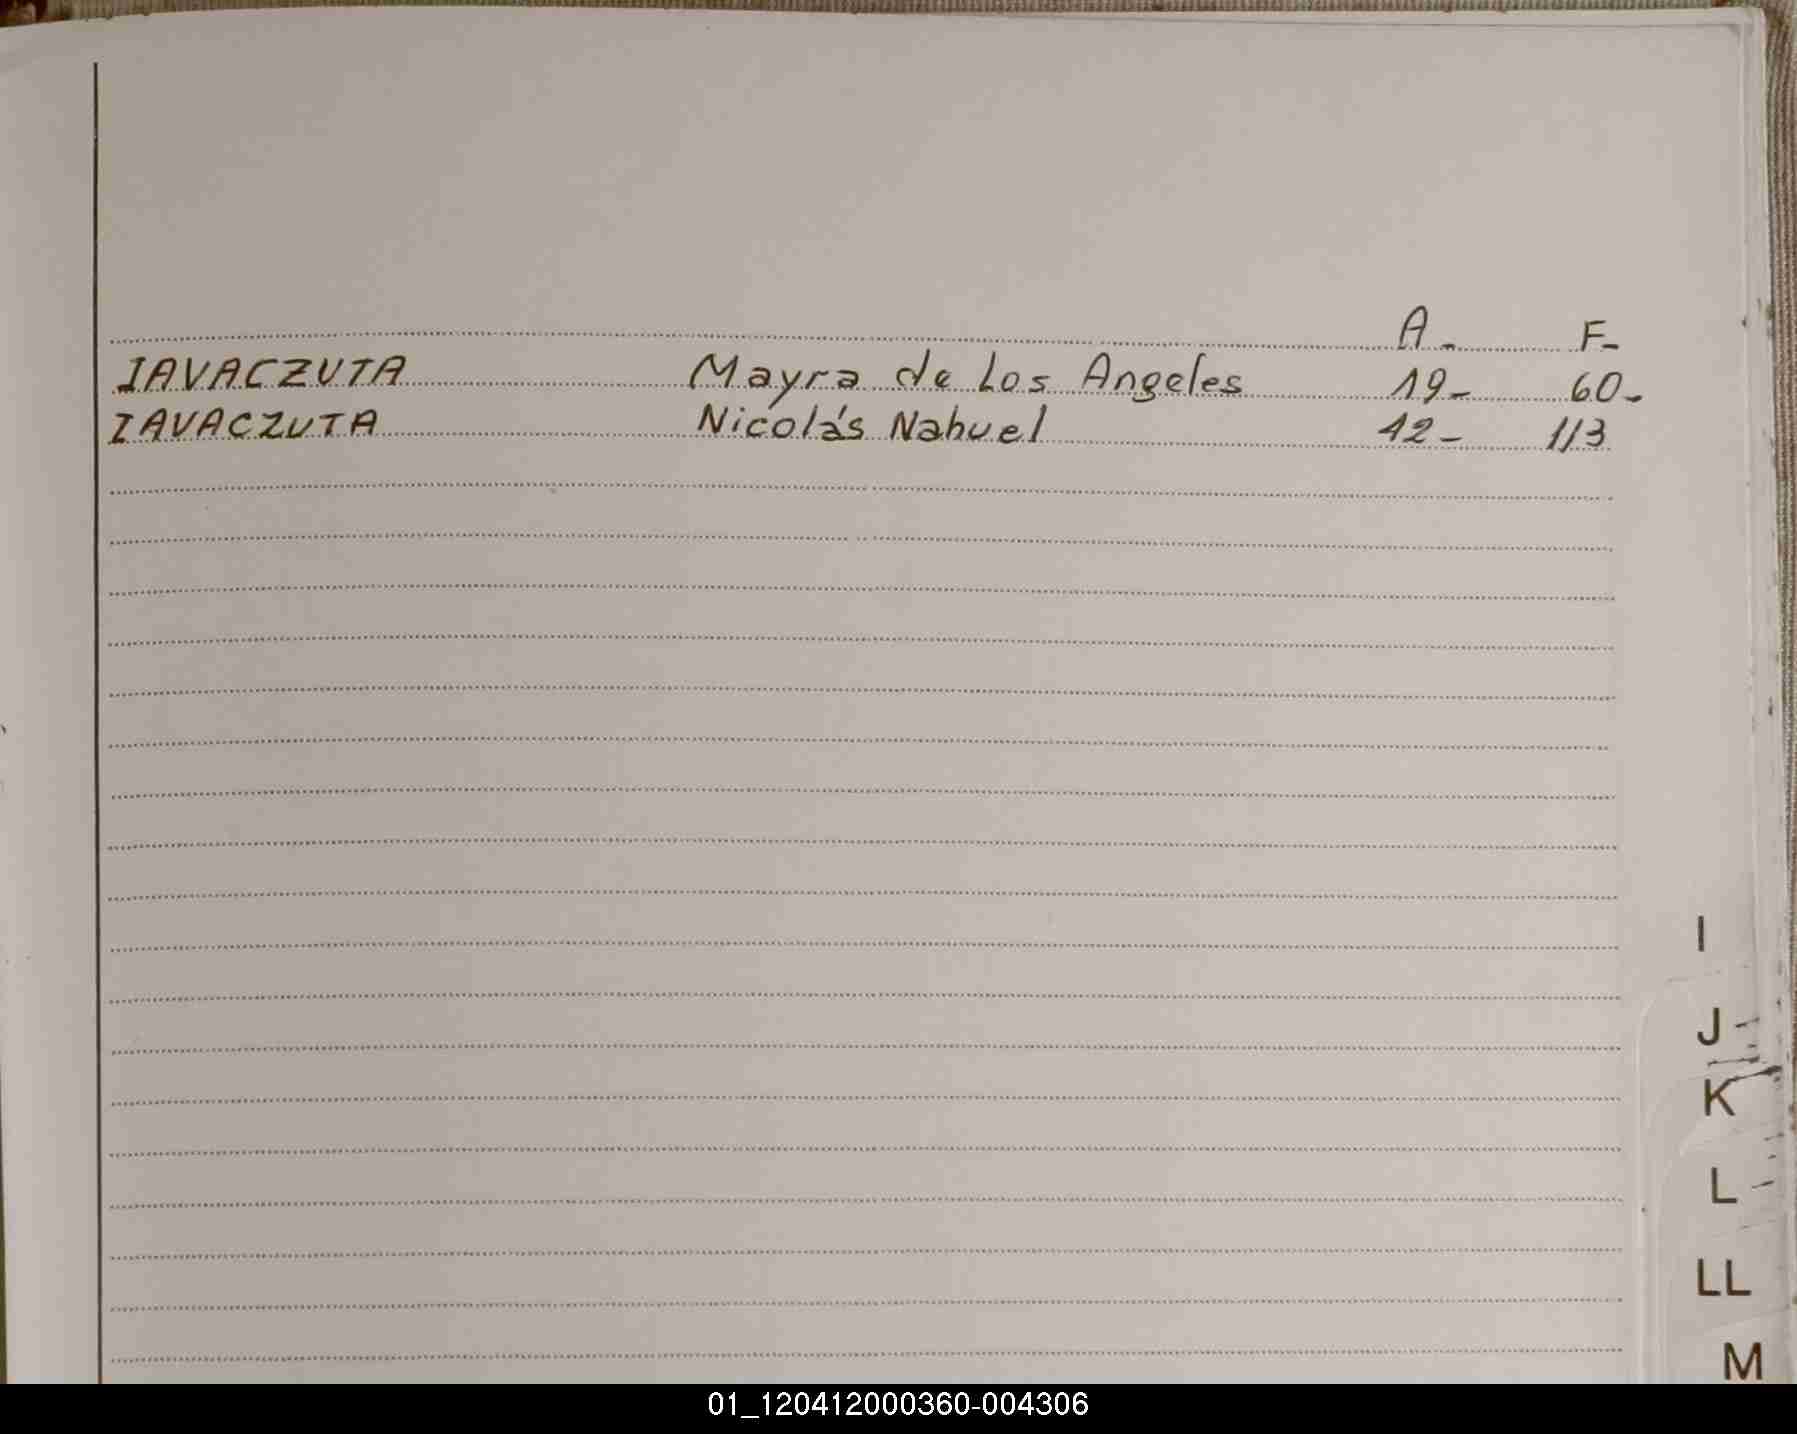 A- F-
IAVACZUTA Mayra de Los Angeles 19- 60-
IAVACZUTA Nicolás Nahuel 12- 113
I
J
K
L
LL
M
01_120412000360-004306